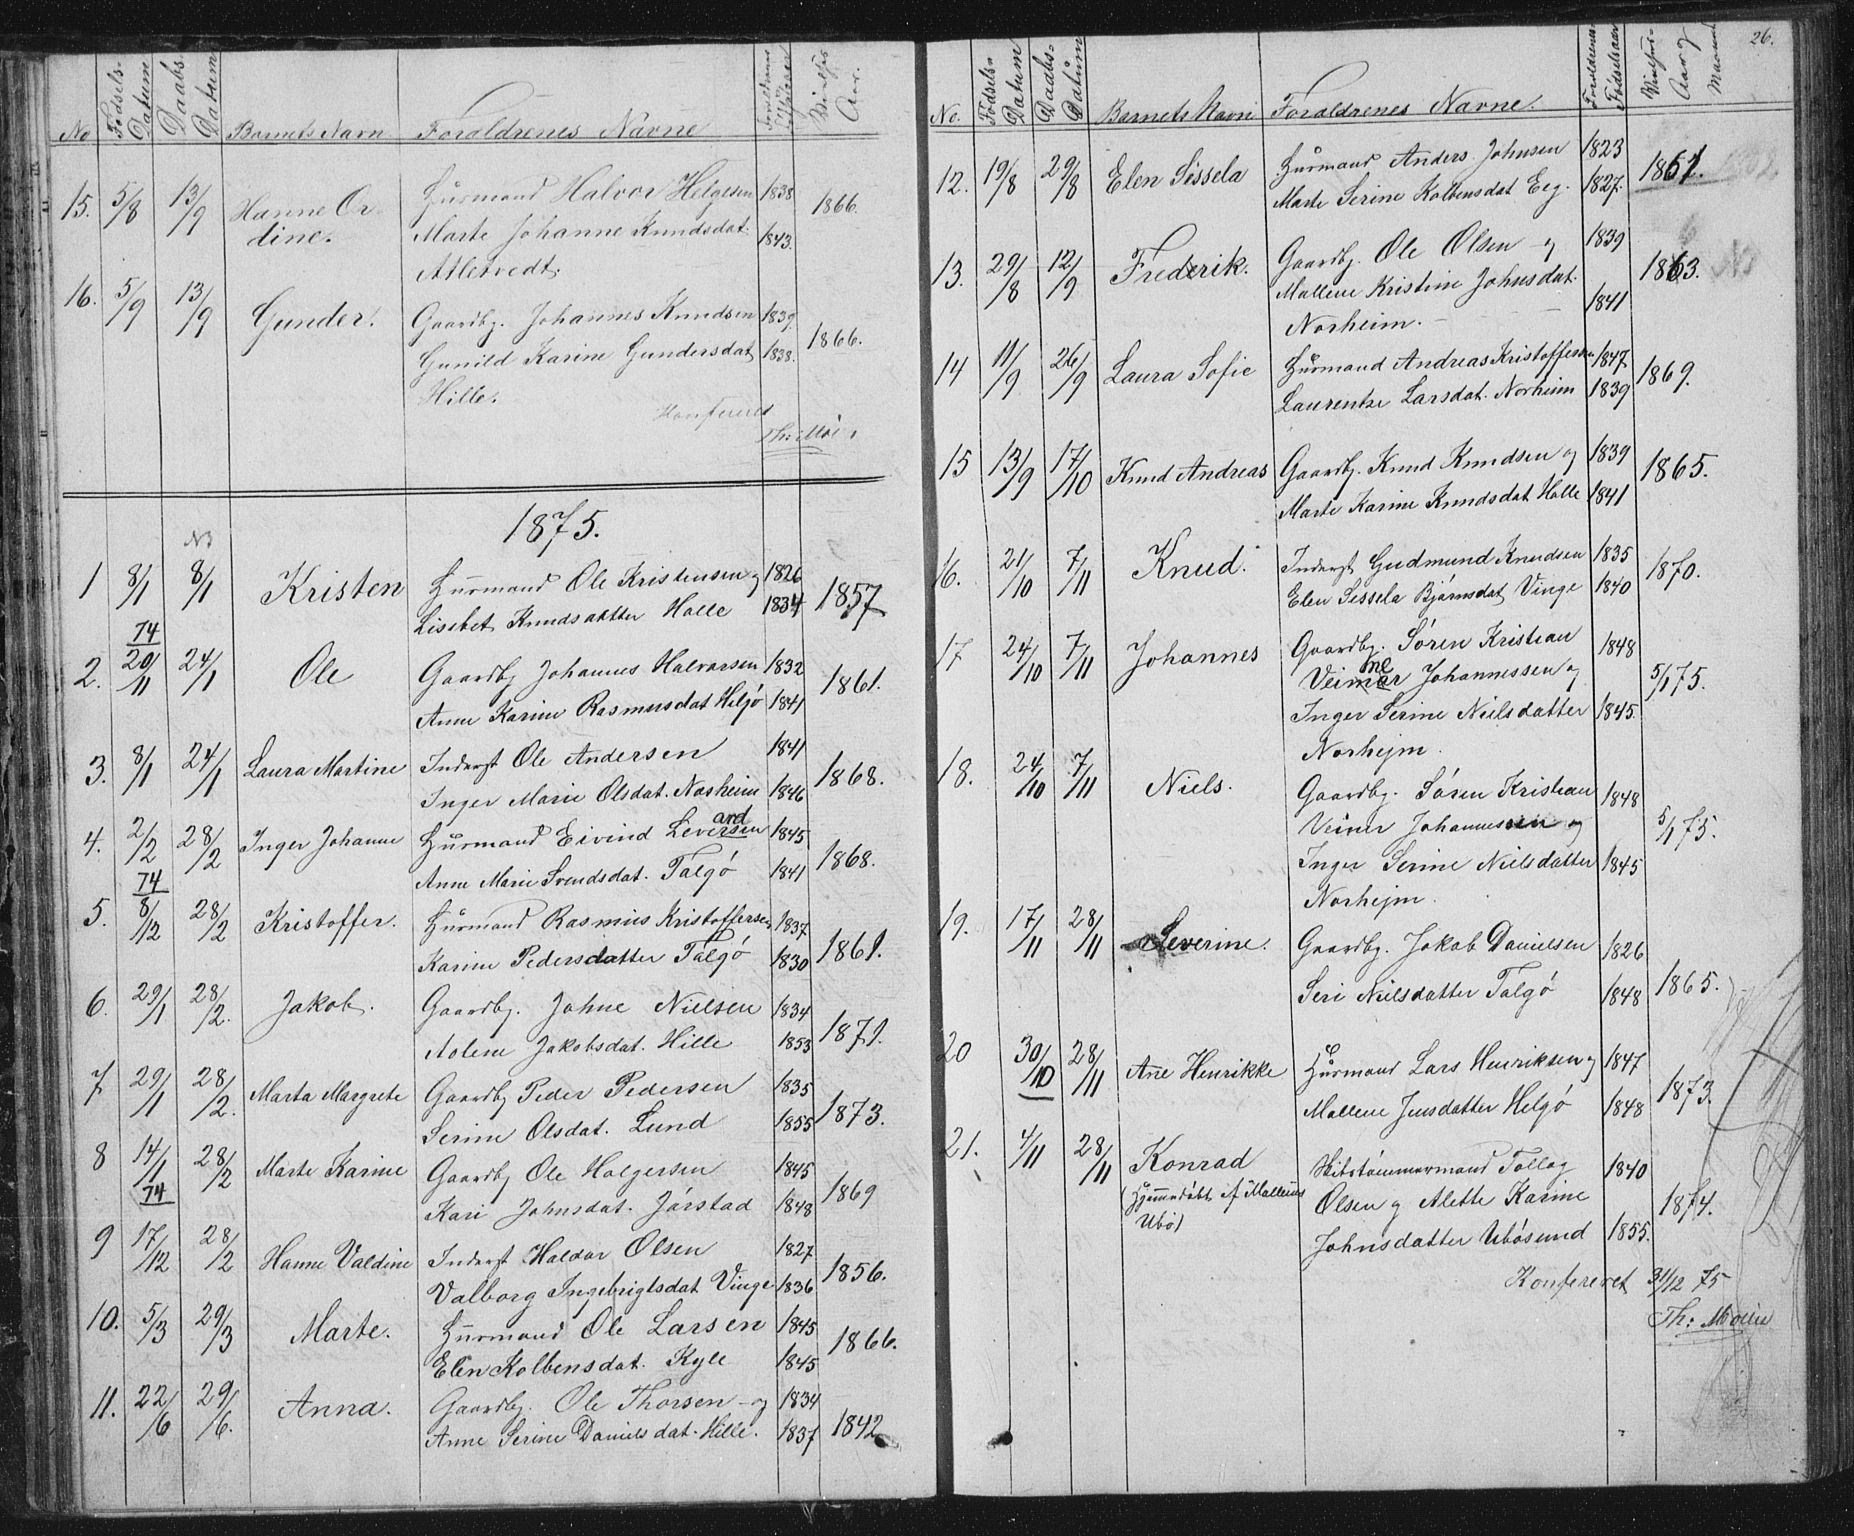 No Fødsels-Datum Daabs-Datum Barnets Navn Forældrenes Navne Aar.
15. 5/8 13/9 Hanne Or- Husmand Halvor Helgesen 1838 1866.
dine. Marte Johanne Knudsdat. 1843.
Atletvedt.
16. 5/9 13/9 Gunder. Gaardbg. Johannes Knudsen 1839. 1866.
Gunild Karine Gundersdat 1838.
Hille.
Konfereres
Th: Møl
1875.
1 8/1 8/1 Kristen Husmand Ole Kristensen og 1826 1857
Lisebet Knudsdatter Halle 1834
74
2. 20/11 24/1 Ole Gaardbg Johannes Halvorsen 1832 1861.
Anne Karine Rasmusdat Helgø 1841
3. 8/1 24/1 Laura Martine Inderst Ole Andersen 1841 1868.
Inger Marie Olsdat. Norheim 1846
ard
4. 2/2 28/2 Inger Johanne Husmand Eivind Leversen 1845 1868.
Anne Marie Svendsdat. Talgø 1841
74
5. 8/12 28/2 Kristoffer. Husmand Rasmus Kristoffersen 1837 1861.
Karine Pedersdatter Talgø 1830
6. 29/1 28/2. Jakob. Gaardbg. Johne Nielsen 1834 1871.
Aolene Jakobsdat. Hille 1853
7 29/1 28/2. Marta Margrete Gaardbg Peder Pedersen 1835 1873.
Serine Olsdat. Lund 1855
8 14/1 28/2 Marte Karine Gaardbg Ole Holgersen 1845 1869
Kari Johnsdat. Jørstad 1848
74
9 17/12 28/2 Hanne Valdine Inderst Haldor Olsen 1827 1856.
Valborg Ingebrigtsdat Vinge 1836
10. 5/3 29/3 Marte. Husmand Ole Larsen 1845 1866.
Elen Kolbensdat. Kyle 1845
11. 22/6 29/6. Anna. Gaardbg. Ole Thorsen - og 1834 1842
Anne Serine Danielsdat. Hille. 1837
26.
No. Fødsels-Datum Daabs-Datum Barnets Navn Forældrenes Navne. Forældrenes Fødselsaar Aar og Maaned
12. 19/8 29/8 Elen Sissela Husmand Anders Johnsen 1823 1861.
Marte Serine Kolbensdat Eeg. 1827.
13. 29/8 12/9 Frederik. Gaardbg. Ole Olsen - og 1839 1863.
Mallene Kristine Johnsdat. 1841
Norheim.
14 11/9 26/9 Laura Sofie Husmand Andreas Kristoffersen 1847 1869.
Laurentze Larsdat. Norheim 1839
15 13/9 17/10 Knud Andreas Gaardbg. Knud Knudsen og 1839 1865.
Marte Karine Knudsdat Halle 1841
16. 21/10 7/11 Knud. Inderst Gudmund Knudsen 1835 1870.
Elen Sissela Bjørnsdat Vinge 1840
17 24/10 7/11 Johannes Gaardbg. Søren Kristian 1848
ne
Veimar Johannessen og 5/1 75.
Inger Serine Nielsdatter 1845.
Norhejm.
18. 24/10 7/11 Niels. Gaardbg. Søren Kristian 1848
Veiner Johannessen og 5/1 75.
Inger Serine Nielsdatter 1845
Norhejm.
19. 17/11 28/11 Severine. Gaardbg. Jakob Danielsen 1826
Seri Nielsdatter Talgø 1848 1865.
20 30/10 28/11 Ane Henrikke Husmand Lars Henriksen og 1847 1873.
Mallene Jensdatter Helgø 1848
21. 4/11 28/11 Konrad Skibstømmermand Tollag 1840
(Hjemmedøbt af Mallenus Olsen og Alette Karine 1874.
Ubø) Johnsdatter Ubøsund 1855.
Konfereret 31/12 75
Th: Møller